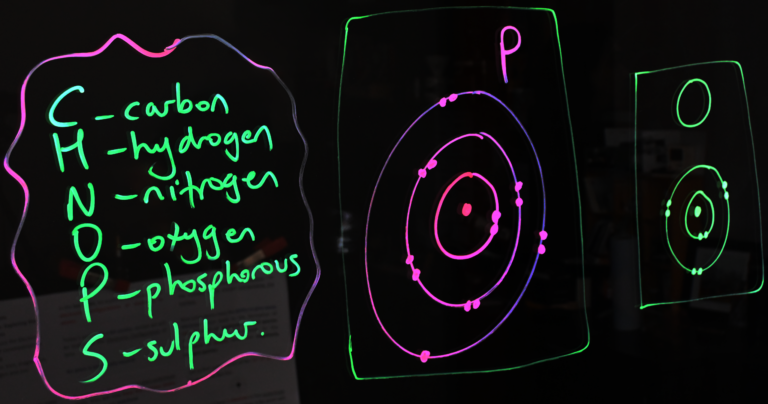 C - carbon
H - hydrogen
N - nitrogen
O - oxygen
P - phosphorous
S - sulphur.
P
O